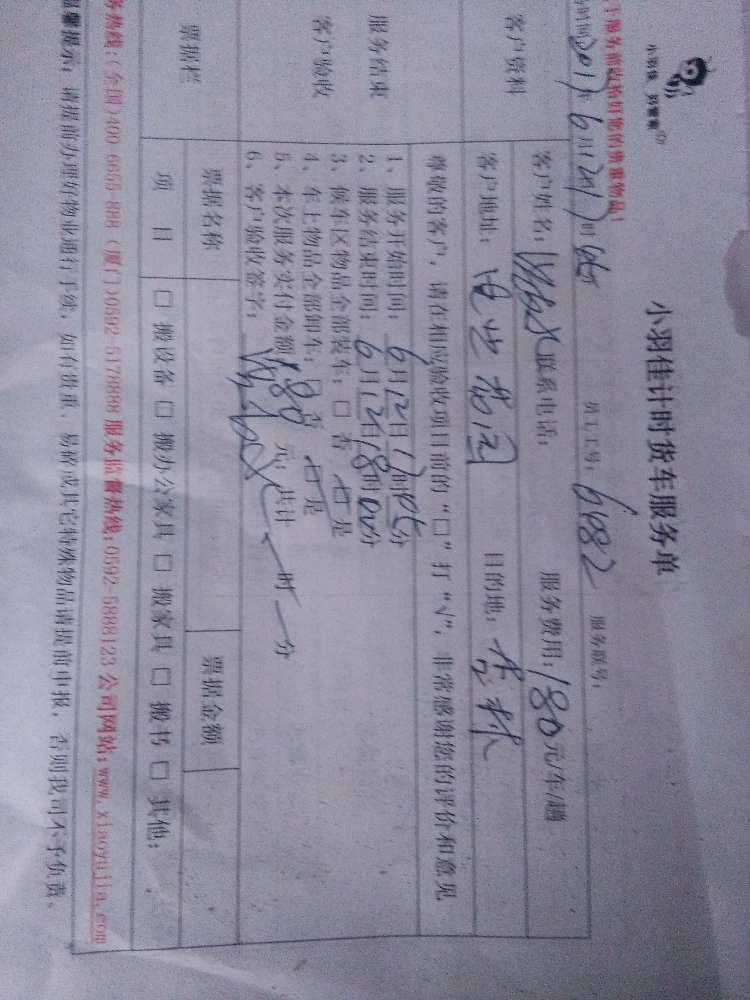 小羽佳 好管家
小羽佳计时货车服务单
于服务前收拾好您的贵重物品!
时间2017年6月12日17时05 员工工号:6982 服务联号:
客户资料
客户姓名: 联系电话: 服务费用:180元/车/趟
客户地址: 目的地:杏林
尊敬的客户,请在相应验收项目前的“□”打“√”,非常感谢您的评价和意见
服务结束
客户验收
1、服务开始时间:6月12日17时05分
2、服务结束时间:6月12日18时00分
3、候车区物品全部装车:□否 □是
4、车上物品全部卸车:□否 □是
5、本次服务实付金额180元;共计 时 分
6、客户验收签字:
票据栏
票据名称 票据金额
项目 □搬设备 □搬办公家具 □搬家具 □搬书 □其他:
务热线:(全国)400-6655-888 (厦门)0592-5178888 服务监督热线:0592-5888123 公司网站:www.xiaoyujia.com
温馨提示:请提前办理好物业通行手续,如有贵重、易碎或其它特殊物品请提前申报,否则我司不予负责。